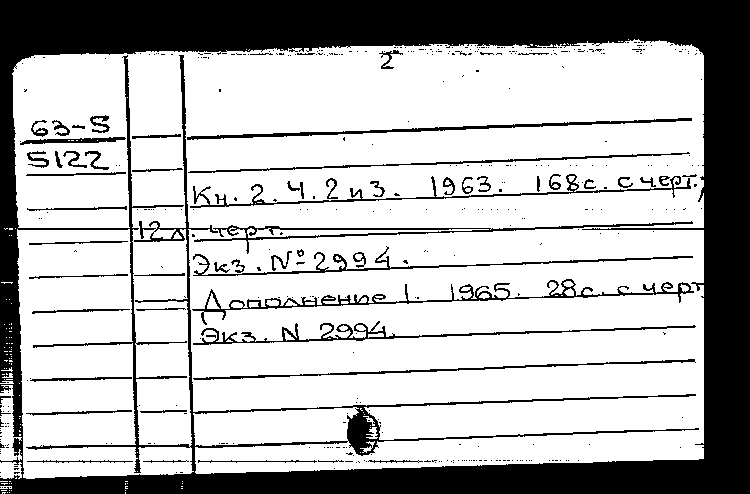 2
63-5
5122
Кн. 2. Ч. 2 и 3. 1963. 168с. с черт.;
12 л. черт.
Экз. № 2994.
Дополнение 1. 1965. 28с. с черт
Экз. N 2994.